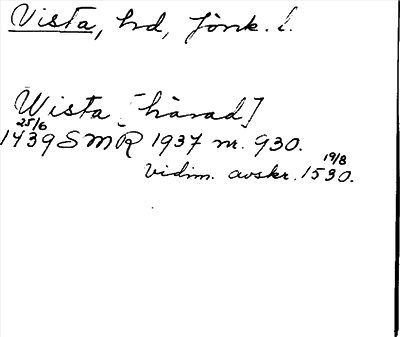 Vista, hd, Jönk. l.
Wista [härad]
25/6
1439 SMR 1937 nr. 930.
19/8
vidim. avskr. 1530.